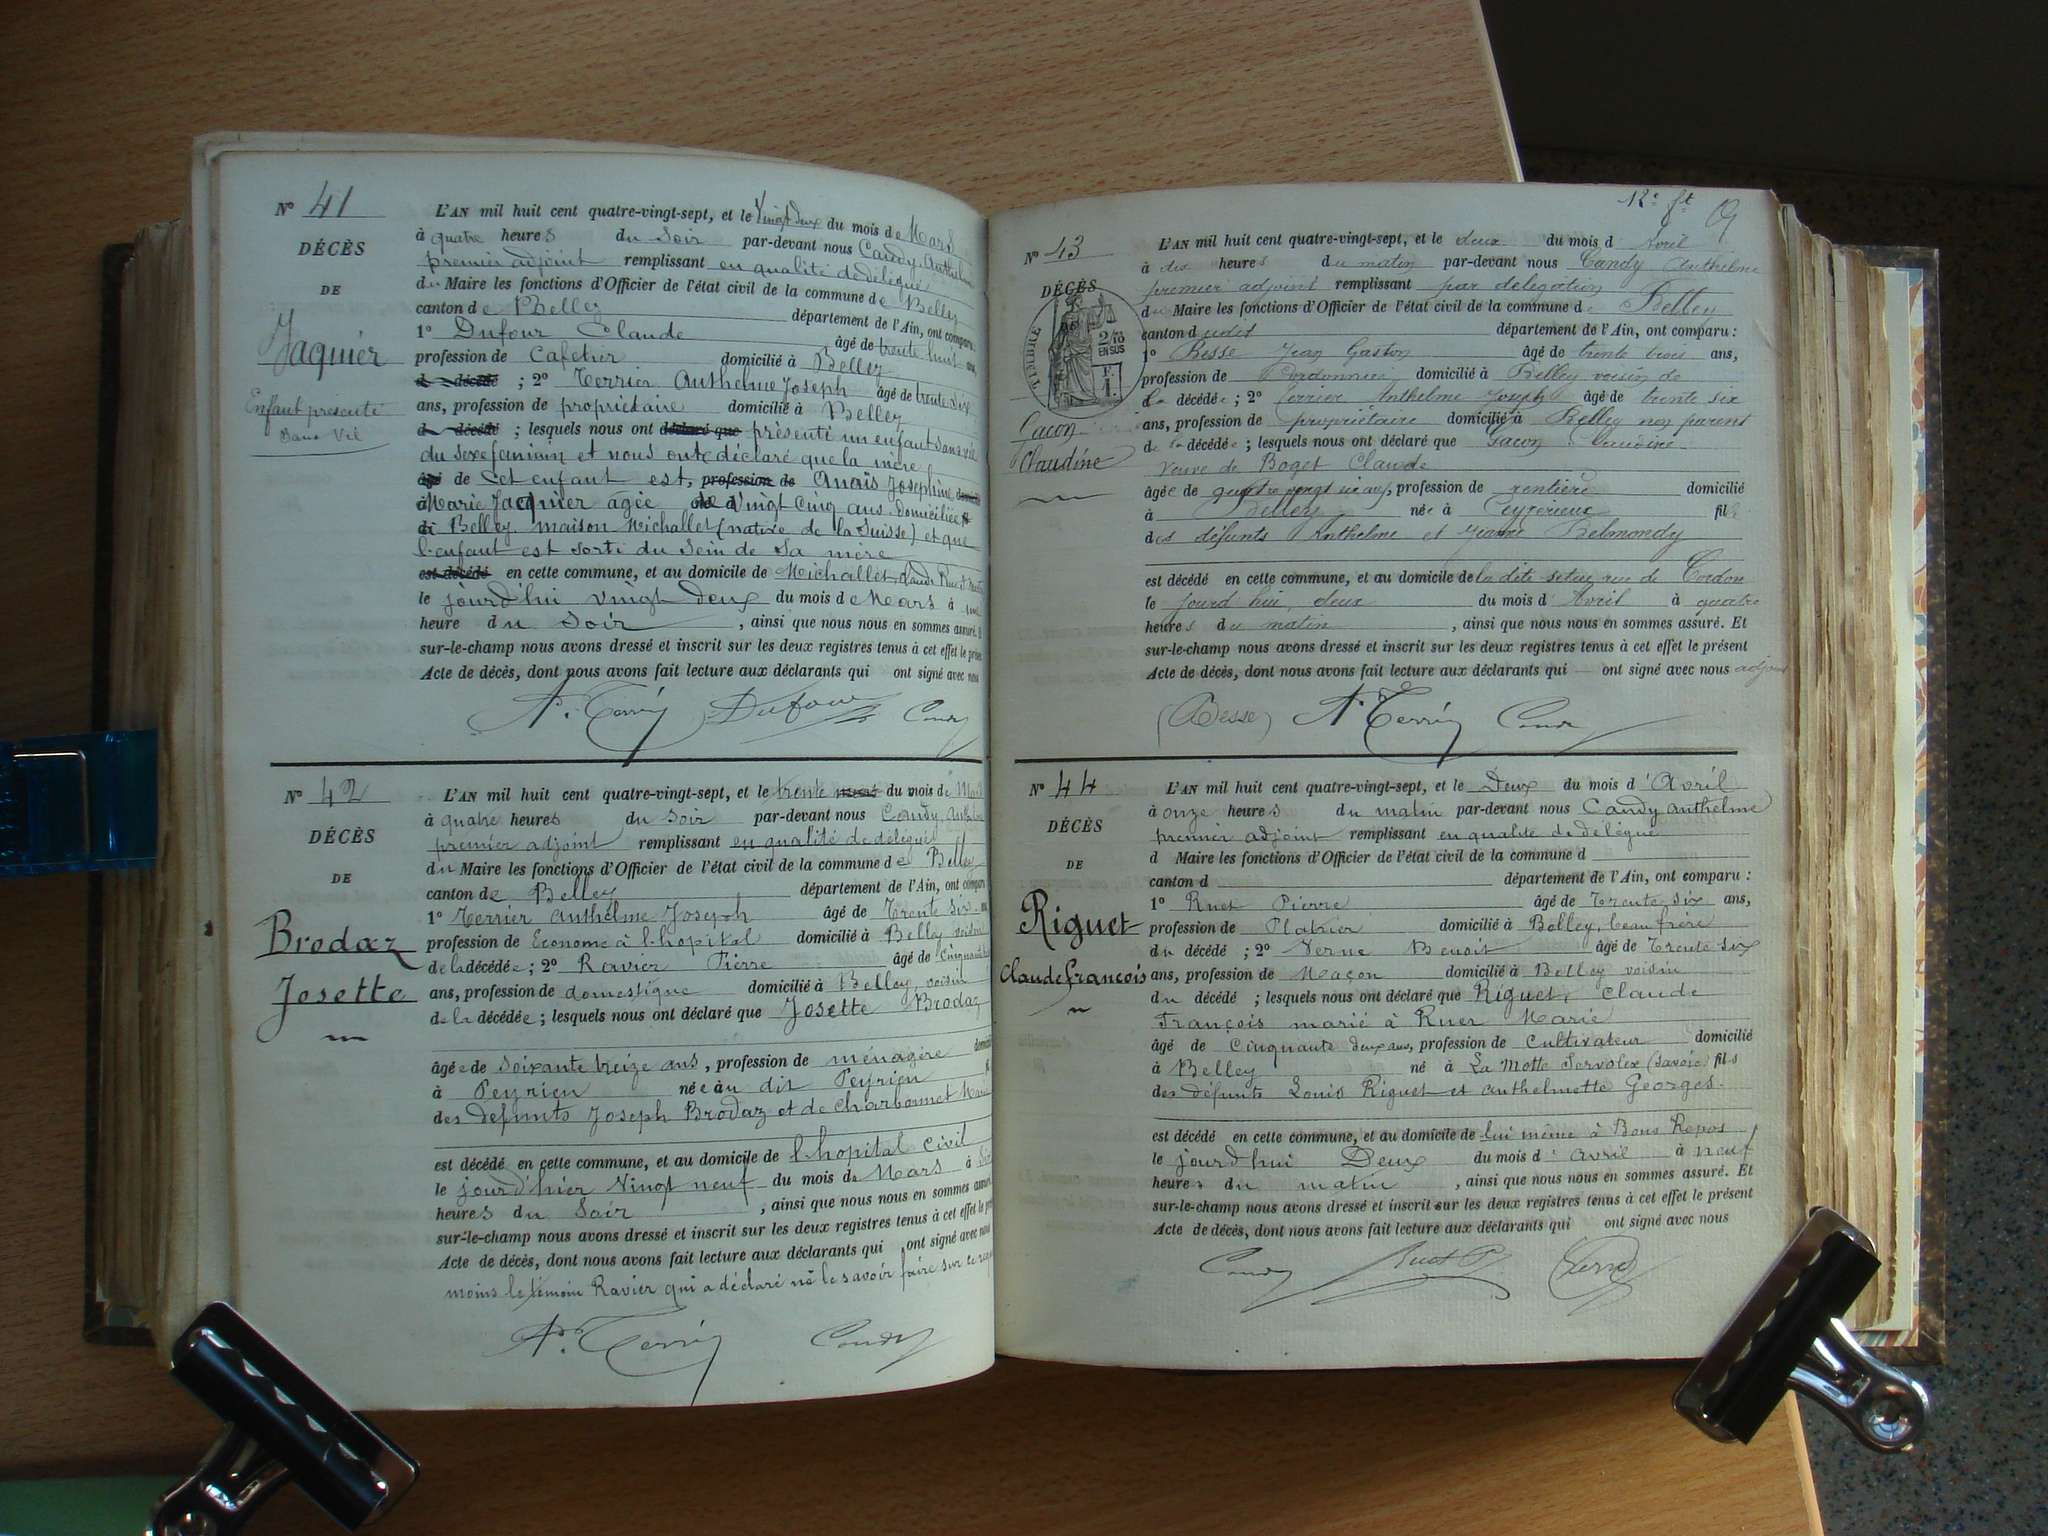 N° 41
DÉCÈS
DE
Jaquier
Enfant présenté
sans vie
L'AN mil huit cent quatre-vingt-sept, et le vingt deux du mois de Mars
à quatre heures du soir par-devant nous Candy, Anthelme
premier adjoint remplissant en qualité de délégué
du Maire les fonctions d'Officier de l'état civil de la commune de Belley
canton de Belley département de l'Ain, ont comparu :
1° Dufour Claude âgé de trente huit ans,
profession de Cafetier domicilié à Belley
d décédé ; 2° Terrier Anthelme Joseph âgé de trente six
ans, profession de propriétaire domicilié à Belley
d décédé ; lesquels nous ont déclaré que présenté un enfant sans vie
du sexe féminin et nous ont déclaré que la mère
âgé de Cet enfant est, profession de Anaïs Josephine,
à Marie Jaquier agée de vingt cinq ans domiciliée
à Belley maison Michallet (native de la Suisse) et que
l'enfant est sorti du sein de sa mère
est décédé en cette commune, et au domicile de Michallet,
le jourd'hui vingt deux du mois de Mars à
heure du soir , ainsi que nous nous en sommes assuré. Et
sur-le-champ nous avons dressé et inscrit sur les deux registres tenus à cet effet le présent
Acte de décès, dont nous avons fait lecture aux déclarants qui ont signé avec nous
A. Terrier Dufour Candy
N° 42
DÉCÈS
DE
Brodaz
Josette
L'AN mil huit cent quatre-vingt-sept, et le trente du mois de Mars
à quatre heures du soir par-devant nous Candy
premier adjoint remplissant en qualité de délégué
du Maire les fonctions d'Officier de l'état civil de la commune de Belley
canton de Belley département de l'Ain, ont comparu
1° Terrier Anthelme Joseph âgé de Trente six
profession de Econome à l'hopital domicilié à Belley voisin
de la décédée ; 2° Ravier Pierre âgé de Cinquante
ans, profession de domestique domicilié à Belley, voisin
de la décédée ; lesquels nous ont déclaré que Josette Brodaz
âgée de soixante treize ans, profession de ménagère domicilié
à Peyrieu née au dit Peyrieu
des défunts Joseph Brodaz et de Charbonnet Marie
est décédé en cette commune, et au domicile de l'hopital civil
le jourd'hier Vingt neuf du mois de Mars à
heures du Soir , ainsi que nous nous en sommes assuré
sur-le-champ nous avons dressé et inscrit sur les deux registres tenus à cet effet le
Acte de décès, dont nous avons fait lecture aux déclarants qui ont signé avec nous
moins le témoin Ravier qui a déclaré ne le savoir faire sur ce requis
A. Terrier Candy
12e ft
N° 43
DÉCÈS
TIMBRE
2/10
EN SUS
F.
1.
Gacon
Claudine
L'AN mil huit cent quatre-vingt-sept, et le deux du mois d'Avril
à dix heures du matin par-devant nous Candy Anthelme
premier adjoint remplissant par délégation
du Maire les fonctions d'Officier de l'état civil de la commune de Belley
canton dudit département de l'Ain, ont comparu :
1° Besse Jean Gaston âgé de trente trois ans,
profession de Cordonnier domicilié à Belley voisin de
la décédée ; 2° Terrier Anthelme Joseph âgé de trente six
ans, profession de propriétaire domicilié à Belley non parent
de la décédée ; lesquels nous ont déclaré que Gacon Claudine
veuve de Boget Claude
âgée de quatre vingt six ans, profession de rentière domicilié
à Belley née à Ceyzerieux fille
des défunts Anthelme et Jeanne Belmondy
est décédé en cette commune, et au domicile de la dite setuy rue de Cordon
le jourd'hui, deux du mois d'Avril à quatre
heures du matin , ainsi que nous nous en sommes assuré. Et
sur-le-champ nous avons dressé et inscrit sur les deux registres tenus à cet effet le présent
Acte de décès, dont nous avons fait lecture aux déclarants qui ont signé avec nous adjoint
(Besse) A. Terrier Candy
N° 44
DÉCÈS
DE
Riguet
Claude François
L'AN mil huit cent quatre-vingt-sept, et le Deux du mois d'Avril
à onze heures du matin par-devant nous Candy Anthelme
premier adjoint remplissant en qualité de délégué
d Maire les fonctions d'Officier de l'état civil de la commune d
canton d département de l'Ain, ont comparu :
1° Ruet Pierre âgé de Trente six ans,
profession de Platrier domicilié à Belley, beau frère
du décédé ; 2° Verne Benoit âgé de Trente six
ans, profession de Maçon domicilié à Belley voisin
du décédé ; lesquels nous ont déclaré que Riguet, Claude
François marié à Ruet Marie
âgé de Cinquante deux ans, profession de Cultivateur domicilié
à Belley né à La Motte Servolex (Savoie) fils
des défunts Louis Riguet et Anthelmette Georges.
est décédé en cette commune, et au domicile de lui même à Bons Repos
le jourd'hui Deux du mois d'avril à neuf
heures du matin , ainsi que nous nous en sommes assuré. Et
sur-le-champ nous avons dressé et inscrit sur les deux registres tenus à cet effet le présent
Acte de décès, dont nous avons fait lecture aux déclarants qui ont signé avec nous
Candy Ruet P Verne